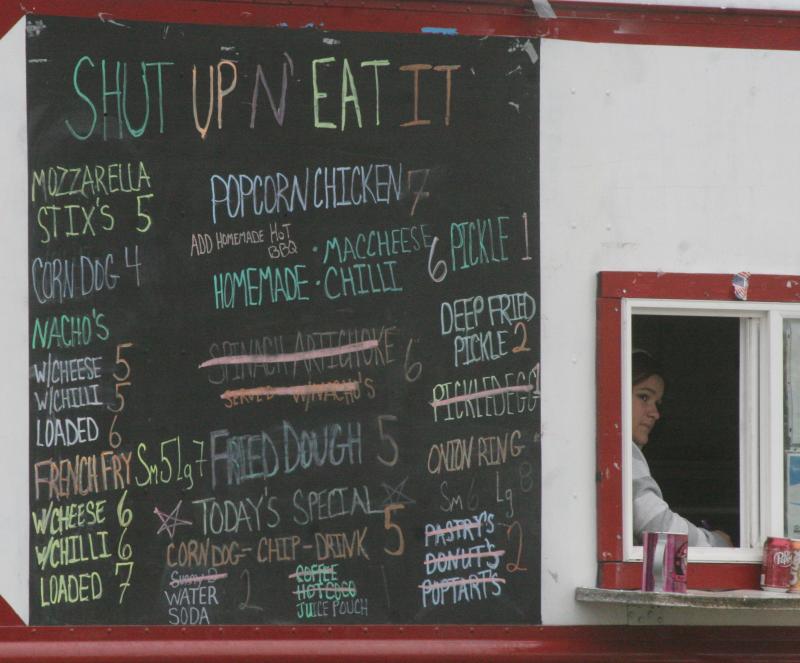 SHUT UP N' EAT IT
MOZZARELLA
STIX'S 5
CORN DOG 4
NACHO'S
W/CHEESE 5
W/CHILLI 5
LOADED 6
FRENCH FRY Sm 5 Lg 7
W/CHEESE 6
W/CHILLI 6
LOADED 7
POPCORN CHICKEN 7
ADD HOMEMADE HOT
BBQ
HOMEMADE · MACCHEESE 6
· CHILLI
SPINACH ARTICHOKE 6
SERVED W/NACHO'S
FRIED DOUGH 5
TODAY'S SPECIAL
CORNDOG - CHIP - DRINK 5
SUNNY D
WATER 2
SODA
COFFEE
HOT COCO
JUICE POUCH
PICKLE 1
DEEP FRIED
PICKLE 2
PICKLED EGG 1
ONION RING
Sm 6 Lg 8
PASTRY'S
DONUT'S 2
POPTARTS